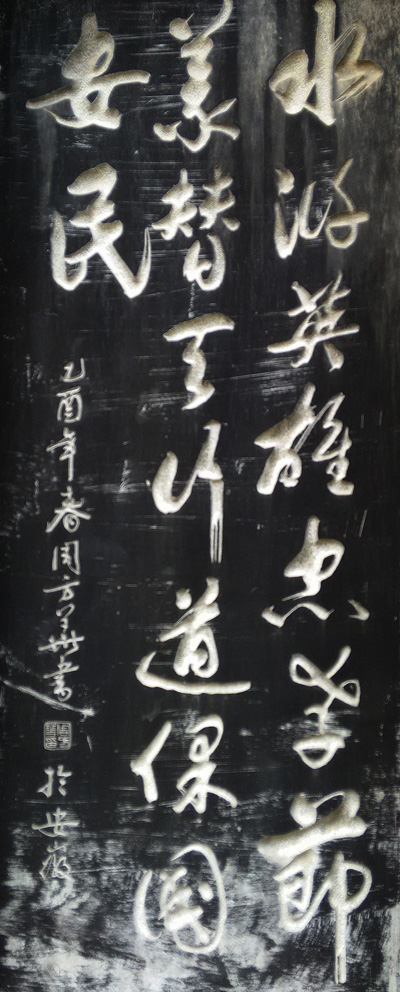 水浒英雄忠孝節
義替天行道保國
安民
乙酉年春周方
於安徽